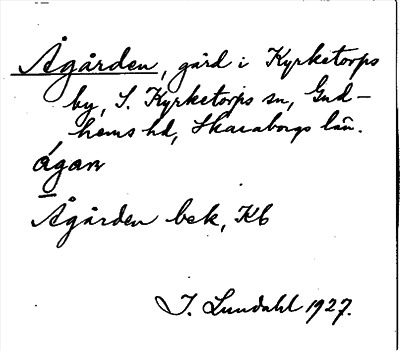 Ågården, gård i Kyrketorps
by, S. Kyrketorps sn, Gud-
hems hd, Skaraborgs län.
ågan
Ågården bek, Kb
I. Lundahl 1927.